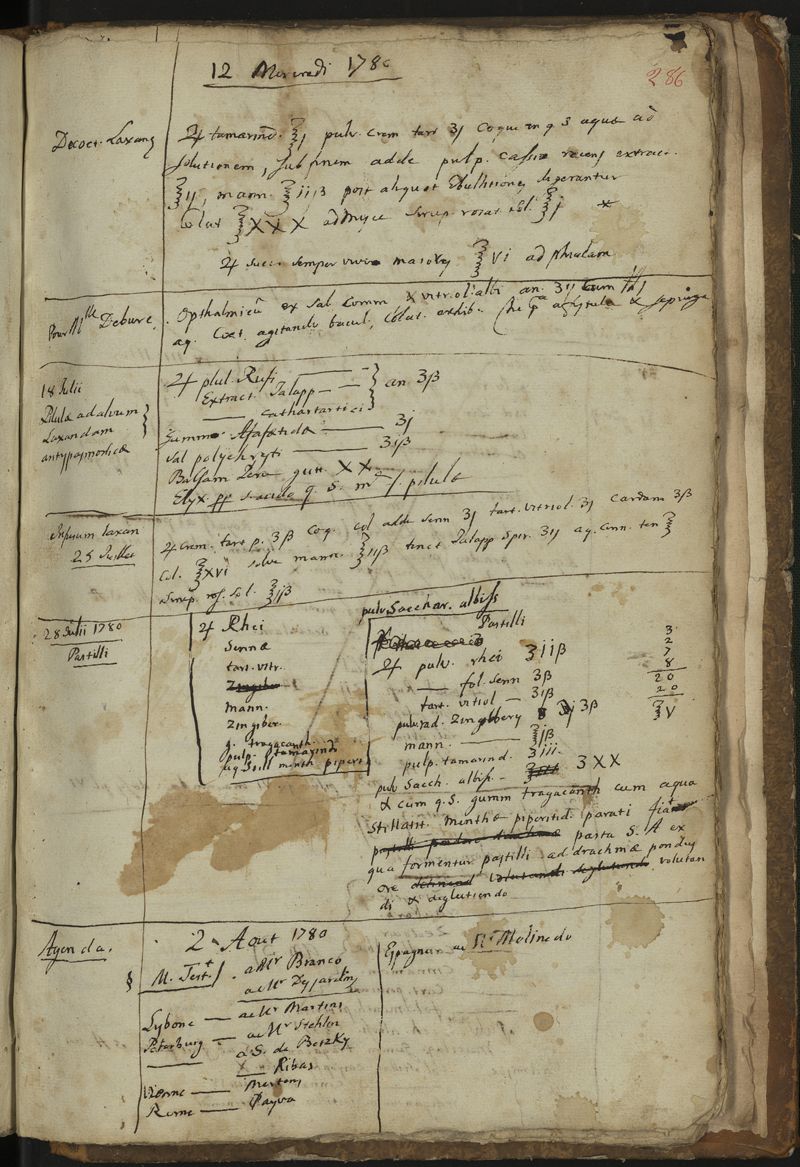 12 Mercredi 1780
286
Decoct. Laxans
♃ tamarind. ℥j pulv. crem tart ʒj coque in q s aquæ ad
solutionem, sub finem adde pulp. cassiæ recens extract.
℥ij, mann. ℥iiβ post aliquot Ebullitiones
Colat ℥XXX admisce Sirup. rosat sol. ℥j *
♃ succi semper vivæ majoris ℥vi ad phialam
Pour Mlle Debure.
Opthalmicū ex Sal comm X vitriol: albi an. ʒij cum
aq. Coct. agitando bacul, Colat. exhib.
18 Julii
Pilulæ ad alvum
Laxandam
antypasmodicæ
♃ pilul. Rufi
Extract. Jalapp
—— cathartici
an ʒβ
Gummi Assafætidæ —— ʒj
Sal polychresti —— ʒiβ
Balsam Peru gutt XX
Elyx. pp s acido q. S. m f. pilulæ
Infusum laxan
25 Juillet
♃ crem. tart p. ʒβ coq. col adde senn ʒj tart. vitriol. ʒj Cardam ʒβ
Col. ℥XVI solve mann. ℥iiβ tinct Jalapp Spir. ʒij aq. cinn. ten ℥
Sirup. ros. sol. ℥iβ
28 Julii 1780
Pastilli
♃ Rhei
Sennæ
tart. vitr.
Zingiber
mann.
Zingiber.
g. tragacanth.
pulp. tamarindi
aq. Still menth piperit
pulv Sacchar. albiss
Pastilli
♃ pulv. rhei ʒiiβ
—— fol. senn ʒβ
tart. vitriol — ʒiβ
pulv rad. Zingibery ʒβ
mann. —— ℥iβ
pulp. tamarind. ʒiii.
pulv Sacch. albiss. — ʒXX
3
2
7
8
20
20
℥V
& cum q. S. gumm tragacanth cum aqua
Stillatit. Menthæ piperitid. parati fiat
pastilli pasta S. A ex
qua formentur pastilli ad drachmæ pondus
ore volutan
di & deglutiendo
Agenda.
2 Aout 1780
§ M. Test
a Mr Branco
ae Mr Desjardins
Lysbone —— ae Mr Martins
Peterburg —— ae Mr Stehlin
—— a S. de Beszky
X — Ribas
Vienne —— Mertens
Rome —— Payva
Espagne ae Mr Molinedo